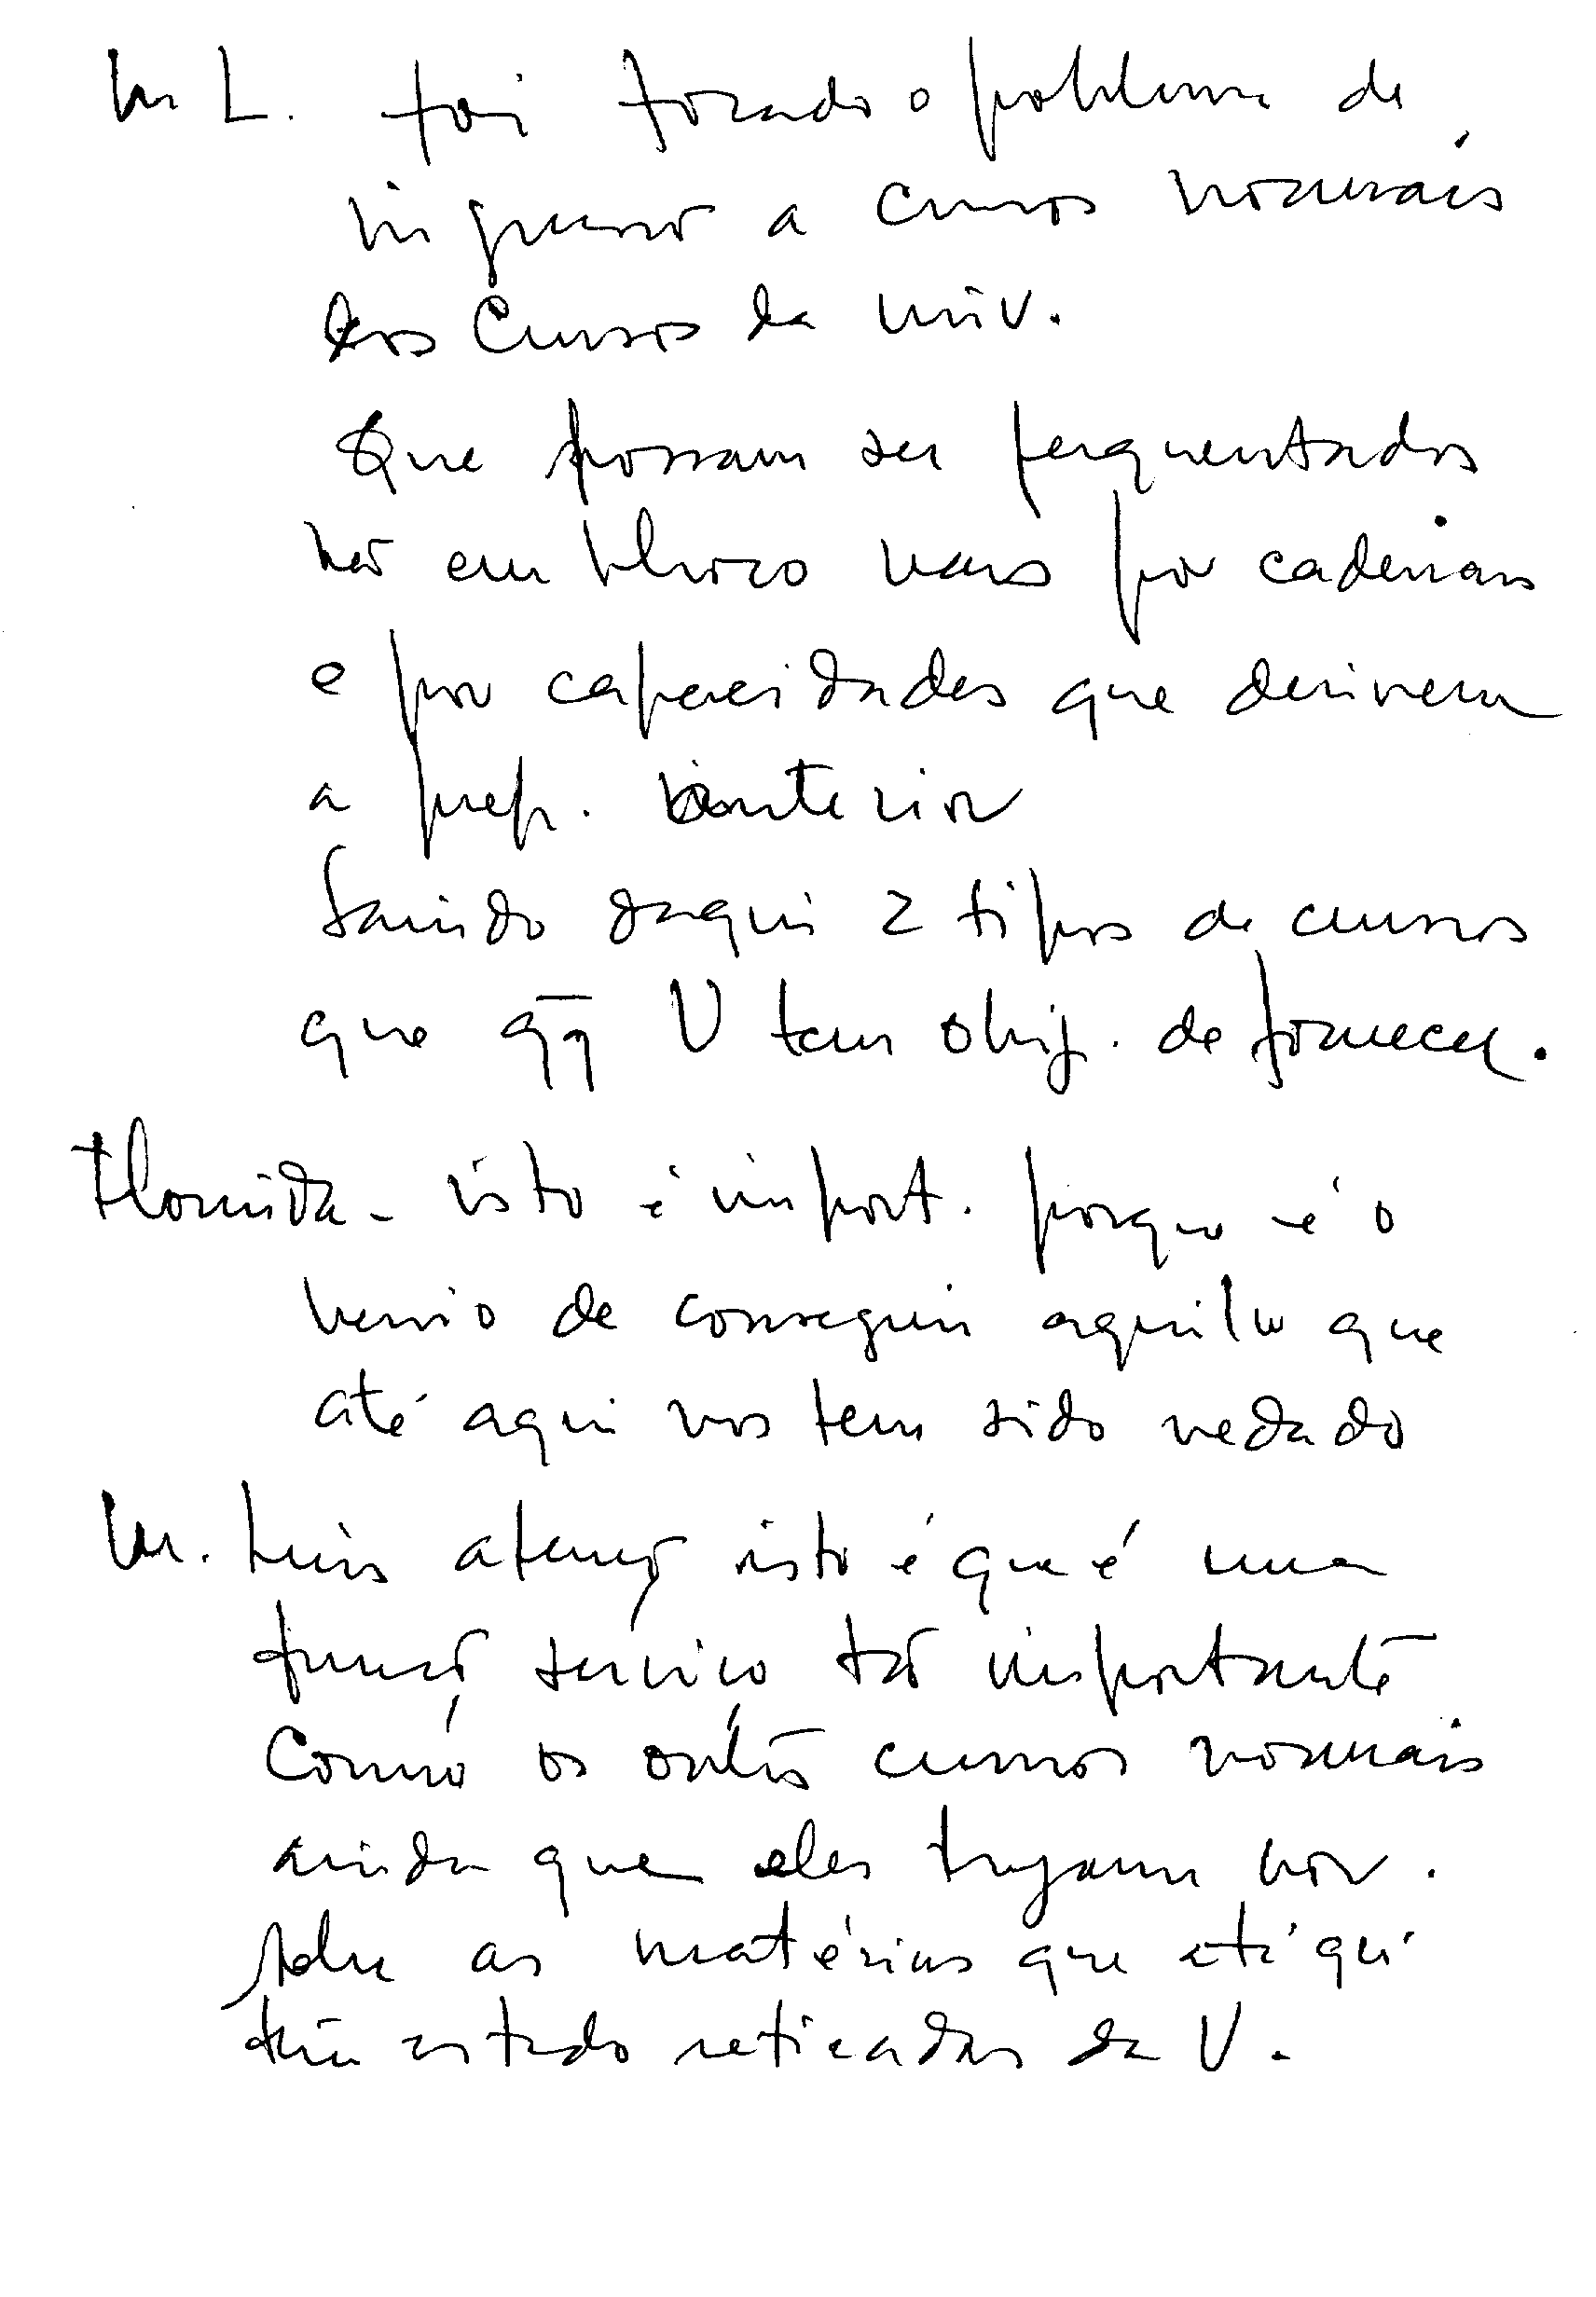 M L. foi focado o problema de
ingresso a cursos normais
dos Cursos da Univ.
Que possam ser frequentados
não em bloco mas por cadeiras
e por capacidades que derivem
a prep. anterior
Saindo daqui 2 tipos de cursos
que qq U tem obrig. de fornecer.
Florida - isto é import. porque é o
meio de conseguir aquilo que
até aqui nos tem sido vedado
M. Luis atenção isto é que é uma
função serviço tão importante
como os outros cursos normais
ainda que eles tragam nov.
sobre as matérias que até qui
têm estado retiradas da U.